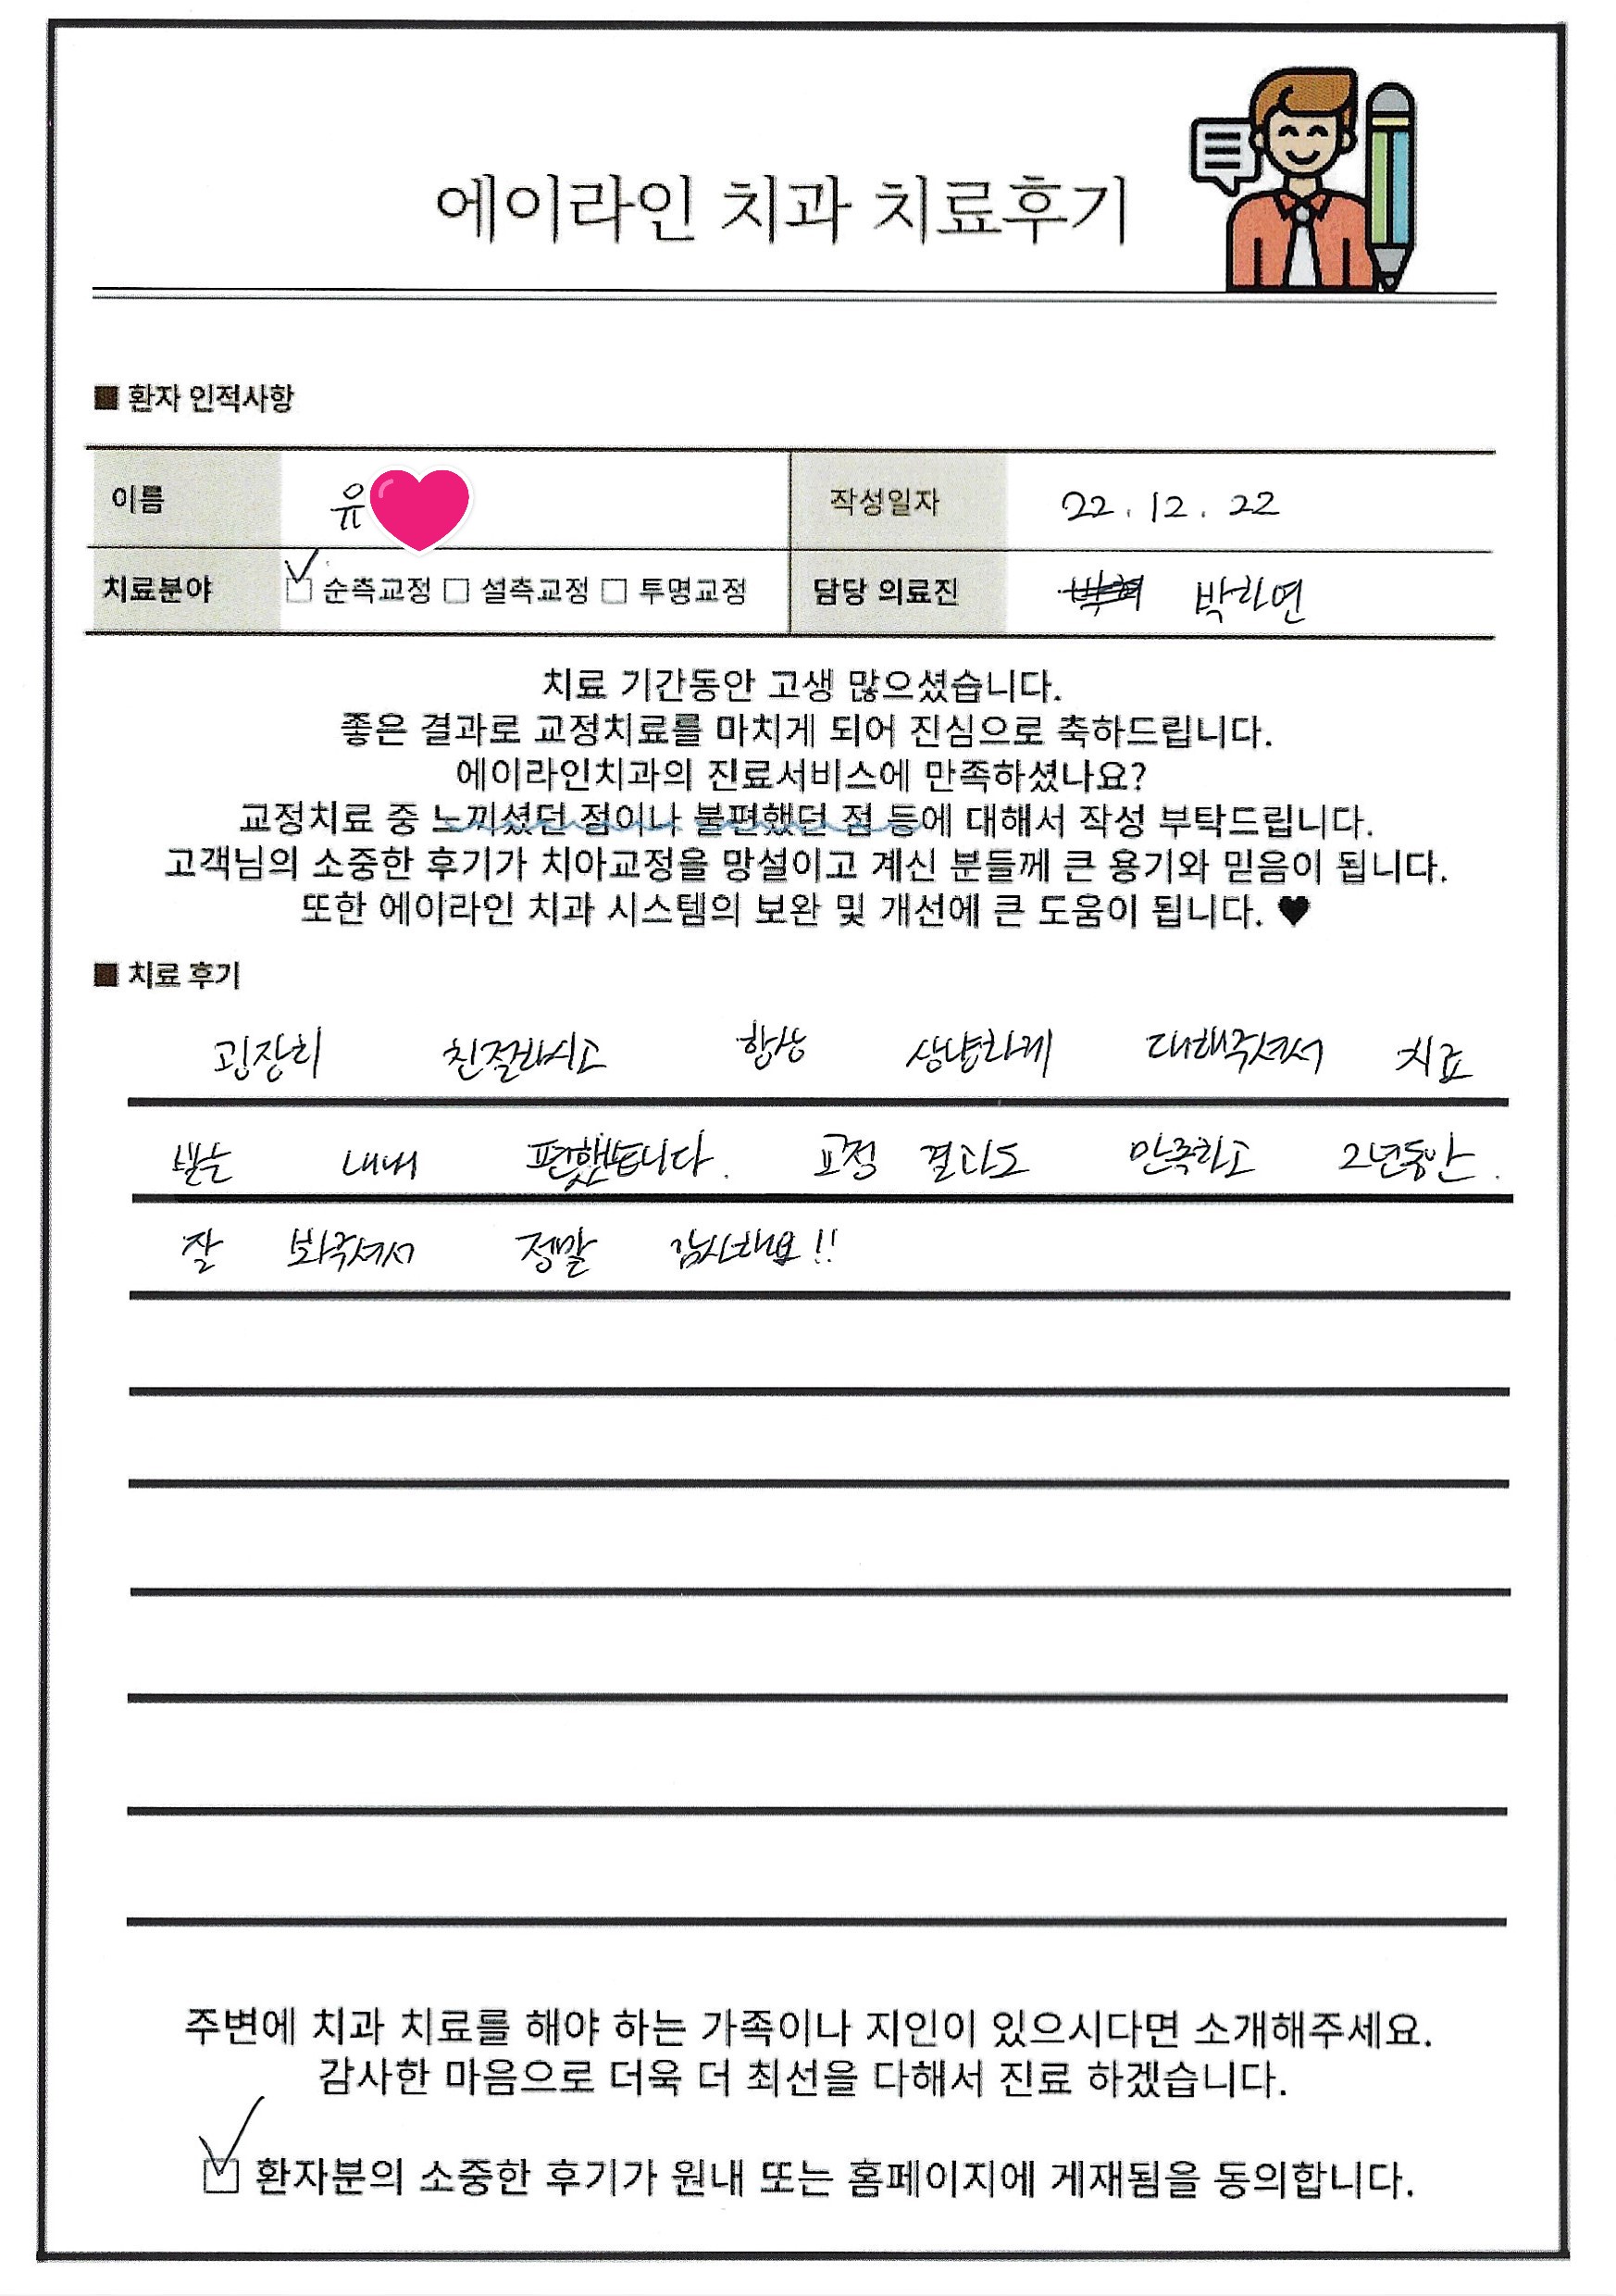 에이라인 치과 치료후기
■ 환자 인적사항
이름 유 작성일자 22. 12. 22
치료분야 ☑ 순측교정 □ 설측교정 □ 투명교정 담당 의료진 박라연
치료 기간동안 고생 많으셨습니다.
좋은 결과로 교정치료를 마치게 되어 진심으로 축하드립니다.
에이라인치과의 진료서비스에 만족하셨나요?
교정치료 중 느끼셨던 점이나 불편했던 점 등에 대해서 작성 부탁드립니다.
고객님의 소중한 후기가 치아교정을 망설이고 계신 분들께 큰 용기와 믿음이 됩니다.
또한 에이라인 치과 시스템의 보완 및 개선에 큰 도움이 됩니다. ♥
■ 치료 후기
굉장히 친절하시고 항상 상냥하게 대해주셔서 치료
받는 내내 편했습니다. 교정 결과도 만족하고 2년동안.
잘 봐주셔서 정말 감사해요!!
주변에 치과 치료를 해야 하는 가족이나 지인이 있으시다면 소개해주세요.
감사한 마음으로 더욱 더 최선을 다해서 진료 하겠습니다.
☑ 환자분의 소중한 후기가 원내 또는 홈페이지에 게재됨을 동의합니다.